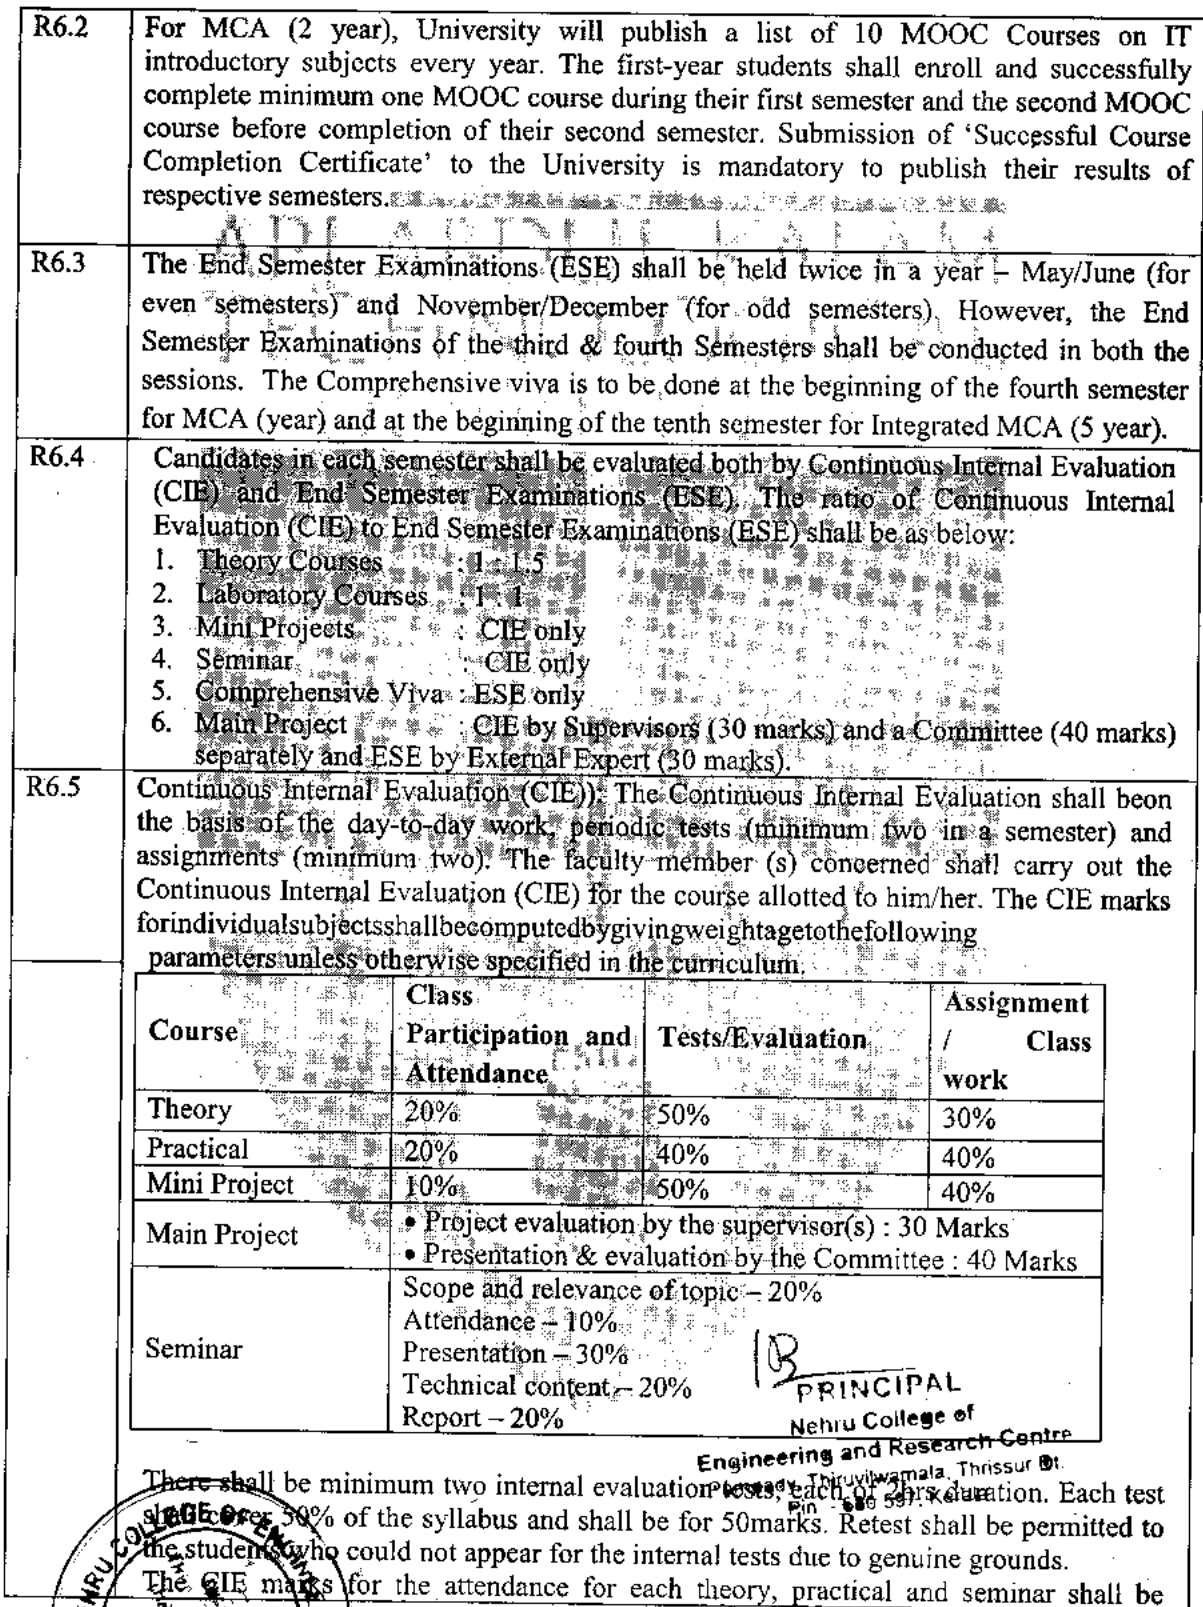 R6.2 For MCA (2 year), University will publish a list of 10 MOOC Courses on IT
introductory subjects every year. The first-year students shall enroll and successfully
complete minimum one MOOC course during their first semester and the second MOOC
course before completion of their second semester. Submission of ‘Successful Course
Completion Certificate’ to the University is mandatory to publish their results of
respective semesters.
R6.3 The End Semester Examinations (ESE) shall be held twice in a year – May/June (for
even semesters) and November/December (for odd semesters). However, the End
Semester Examinations of the third & fourth Semesters shall be conducted in both the
sessions. The Comprehensive viva is to be done at the beginning of the fourth semester
for MCA (year) and at the beginning of the tenth semester for Integrated MCA (5 year).
R6.4 Candidates in each semester shall be evaluated both by Continuous Internal Evaluation
(CIE) and End Semester Examinations (ESE). The ratio of Continuous Internal
Evaluation (CIE) to End Semester Examinations (ESE) shall be as below:
1. Theory Courses : 1 : 1.5
2. Laboratory Courses : 1 : 1
3. Mini Projects : CIE only
4. Seminar : CIE only
5. Comprehensive Viva : ESE only
6. Main Project : CIE by Supervisors (30 marks) and a Committee (40 marks)
separately and ESE by External Expert (30 marks).
R6.5 Continuous Internal Evaluation (CIE)): The Continuous Internal Evaluation shall beon
the basis of the day-to-day work, periodic tests (minimum two in a semester) and
assignments (minimum two). The faculty member (s) concerned shall carry out the
Continuous Internal Evaluation (CIE) for the course allotted to him/her. The CIE marks
forindividualsubjectsshallbecomputedbygivingweightagetothefollowing
parameters unless otherwise specified in the curriculum.
Course
Class
Participation and
Attendance
Tests/Evaluation
Assignment
/ Class
work
Theory 20% 50% 30%
Practical 20% 40% 40%
Mini Project 10% 50% 40%
Main Project
• Project evaluation by the supervisor(s) : 30 Marks
• Presentation & evaluation by the Committee : 40 Marks
Seminar
Scope and relevance of topic – 20%
Attendance – 10%
Presentation – 30%
Technical content – 20%
Report – 20%
PRINCIPAL
Nehru College of
Engineering and Research Centre
Thiruvilwamala, Thrissur Dt.
Pin - 680 597. Kerala
There shall be minimum two internal evaluation tests, each of 2hrs duration. Each test
shall cover 50% of the syllabus and shall be for 50marks. Retest shall be permitted to
the students who could not appear for the internal tests due to genuine grounds.
The CIE marks for the attendance for each theory, practical and seminar shall be
COLLEGE OF